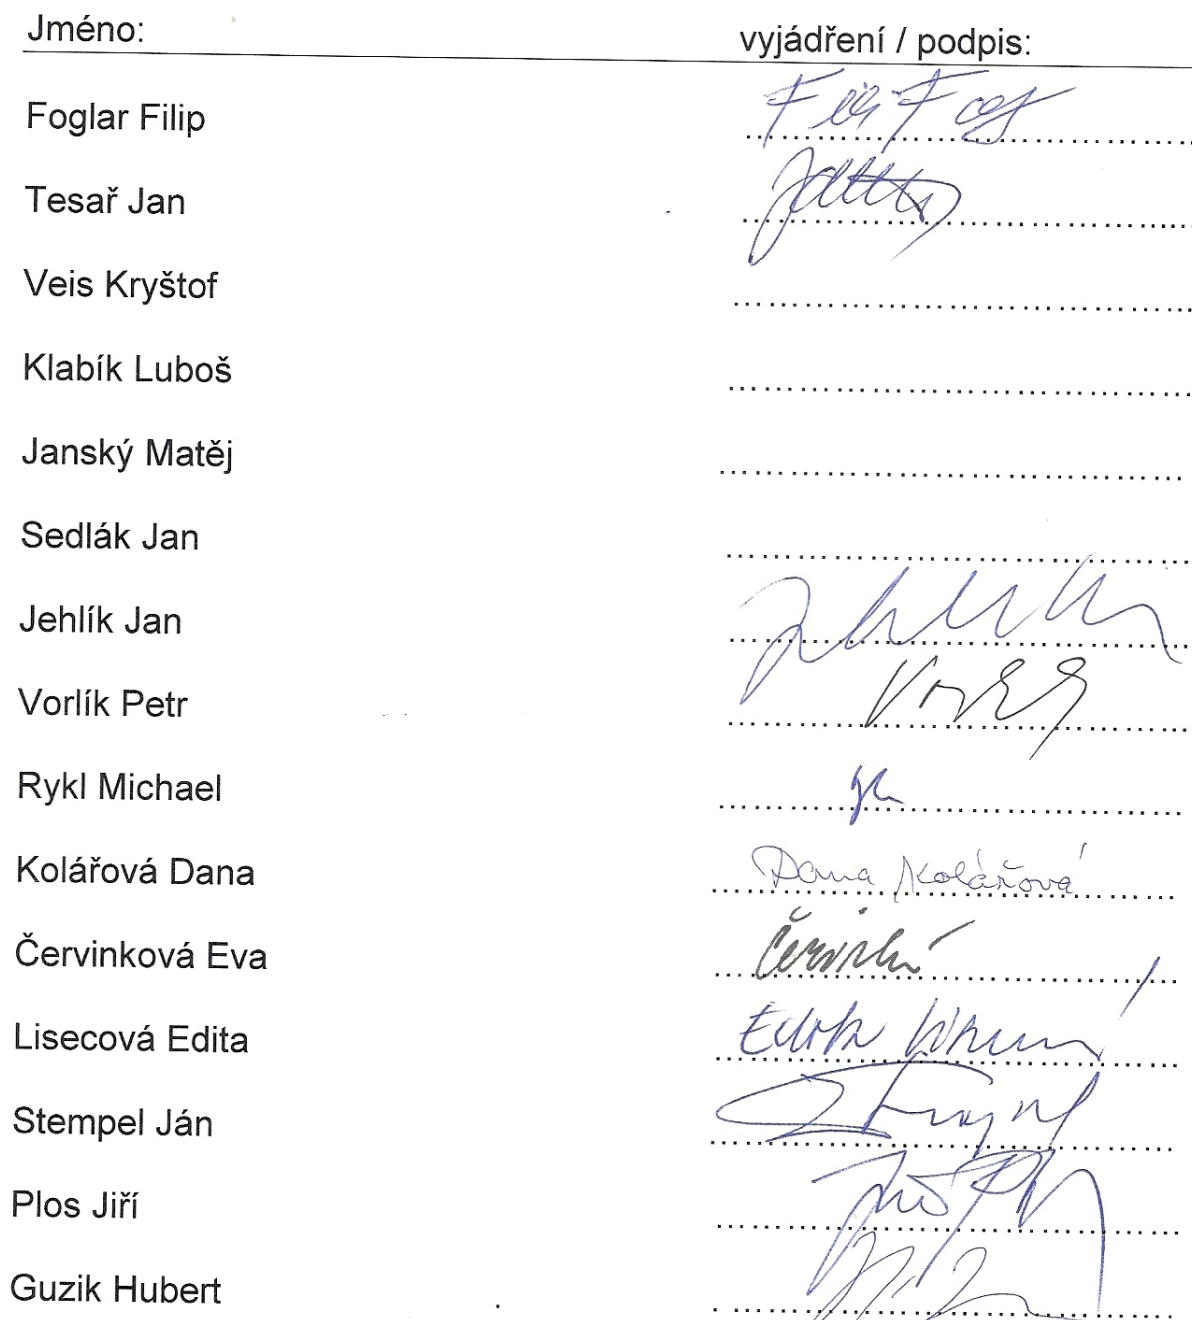 Jméno: vyjádření / podpis:
Foglar Filip
Tesař Jan
Veis Kryštof
Klabík Luboš
Janský Matěj
Sedlák Jan
Jehlík Jan
Vorlík Petr
Rykl Michael
Kolářová Dana Dana Kolářová
Červinková Eva
Lisecová Edita Edita
Stempel Ján
Plos Jiří
Guzik Hubert